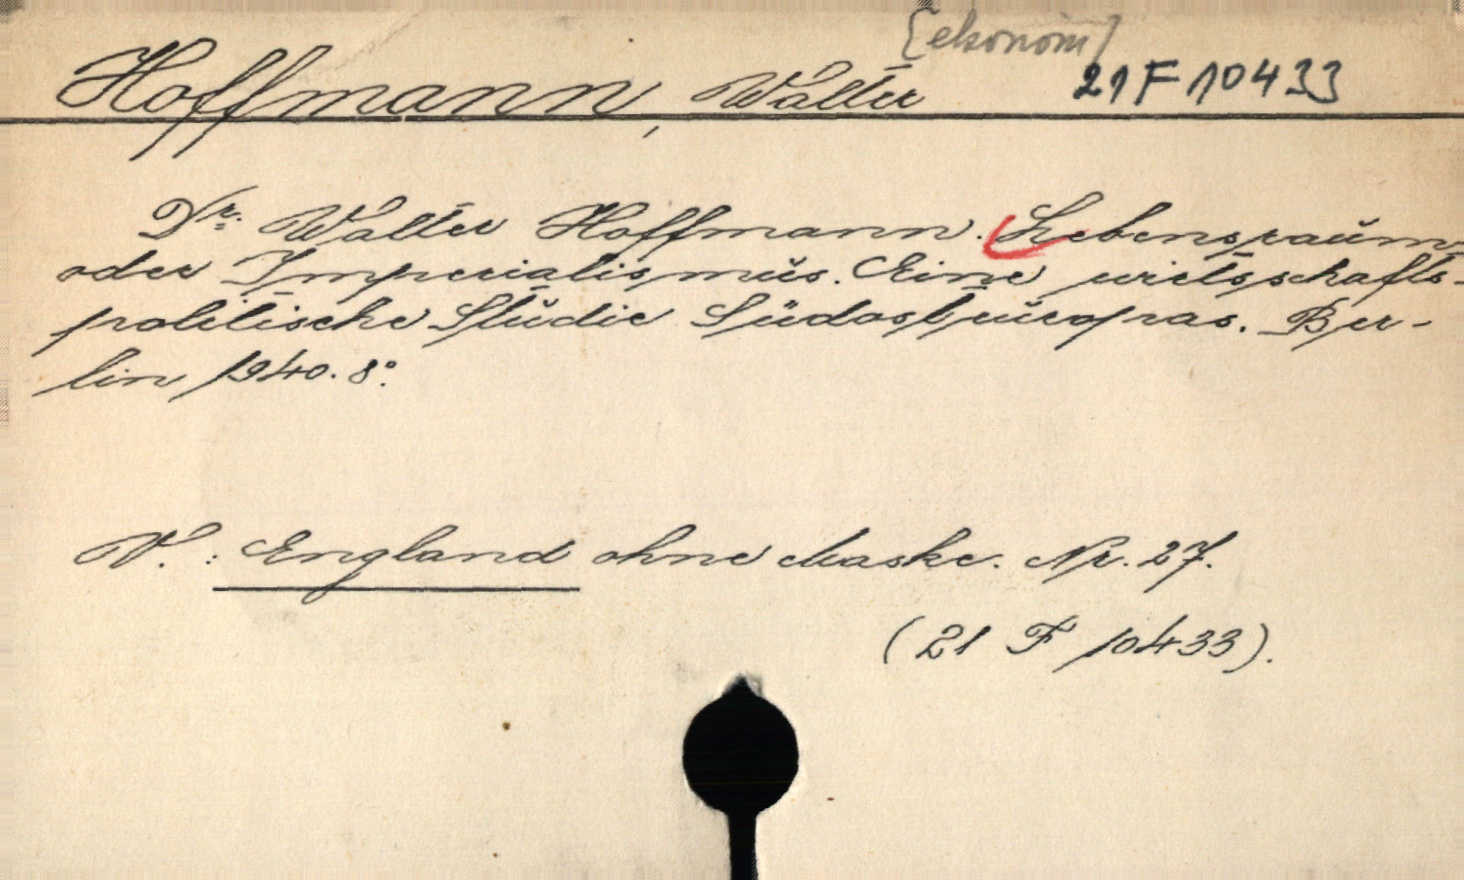 [ekonom]
Hoffmann, Walter 21 F 10433
Dr. Walter Hoffmann. Lebensraum
oder Imperialismus. Eine wirtsschafts-
politische Studie Südosteuropas. Ber-
lin 1940. 8°.
V.: England ohne Maske. Nr. 27.
(21 F 10433).